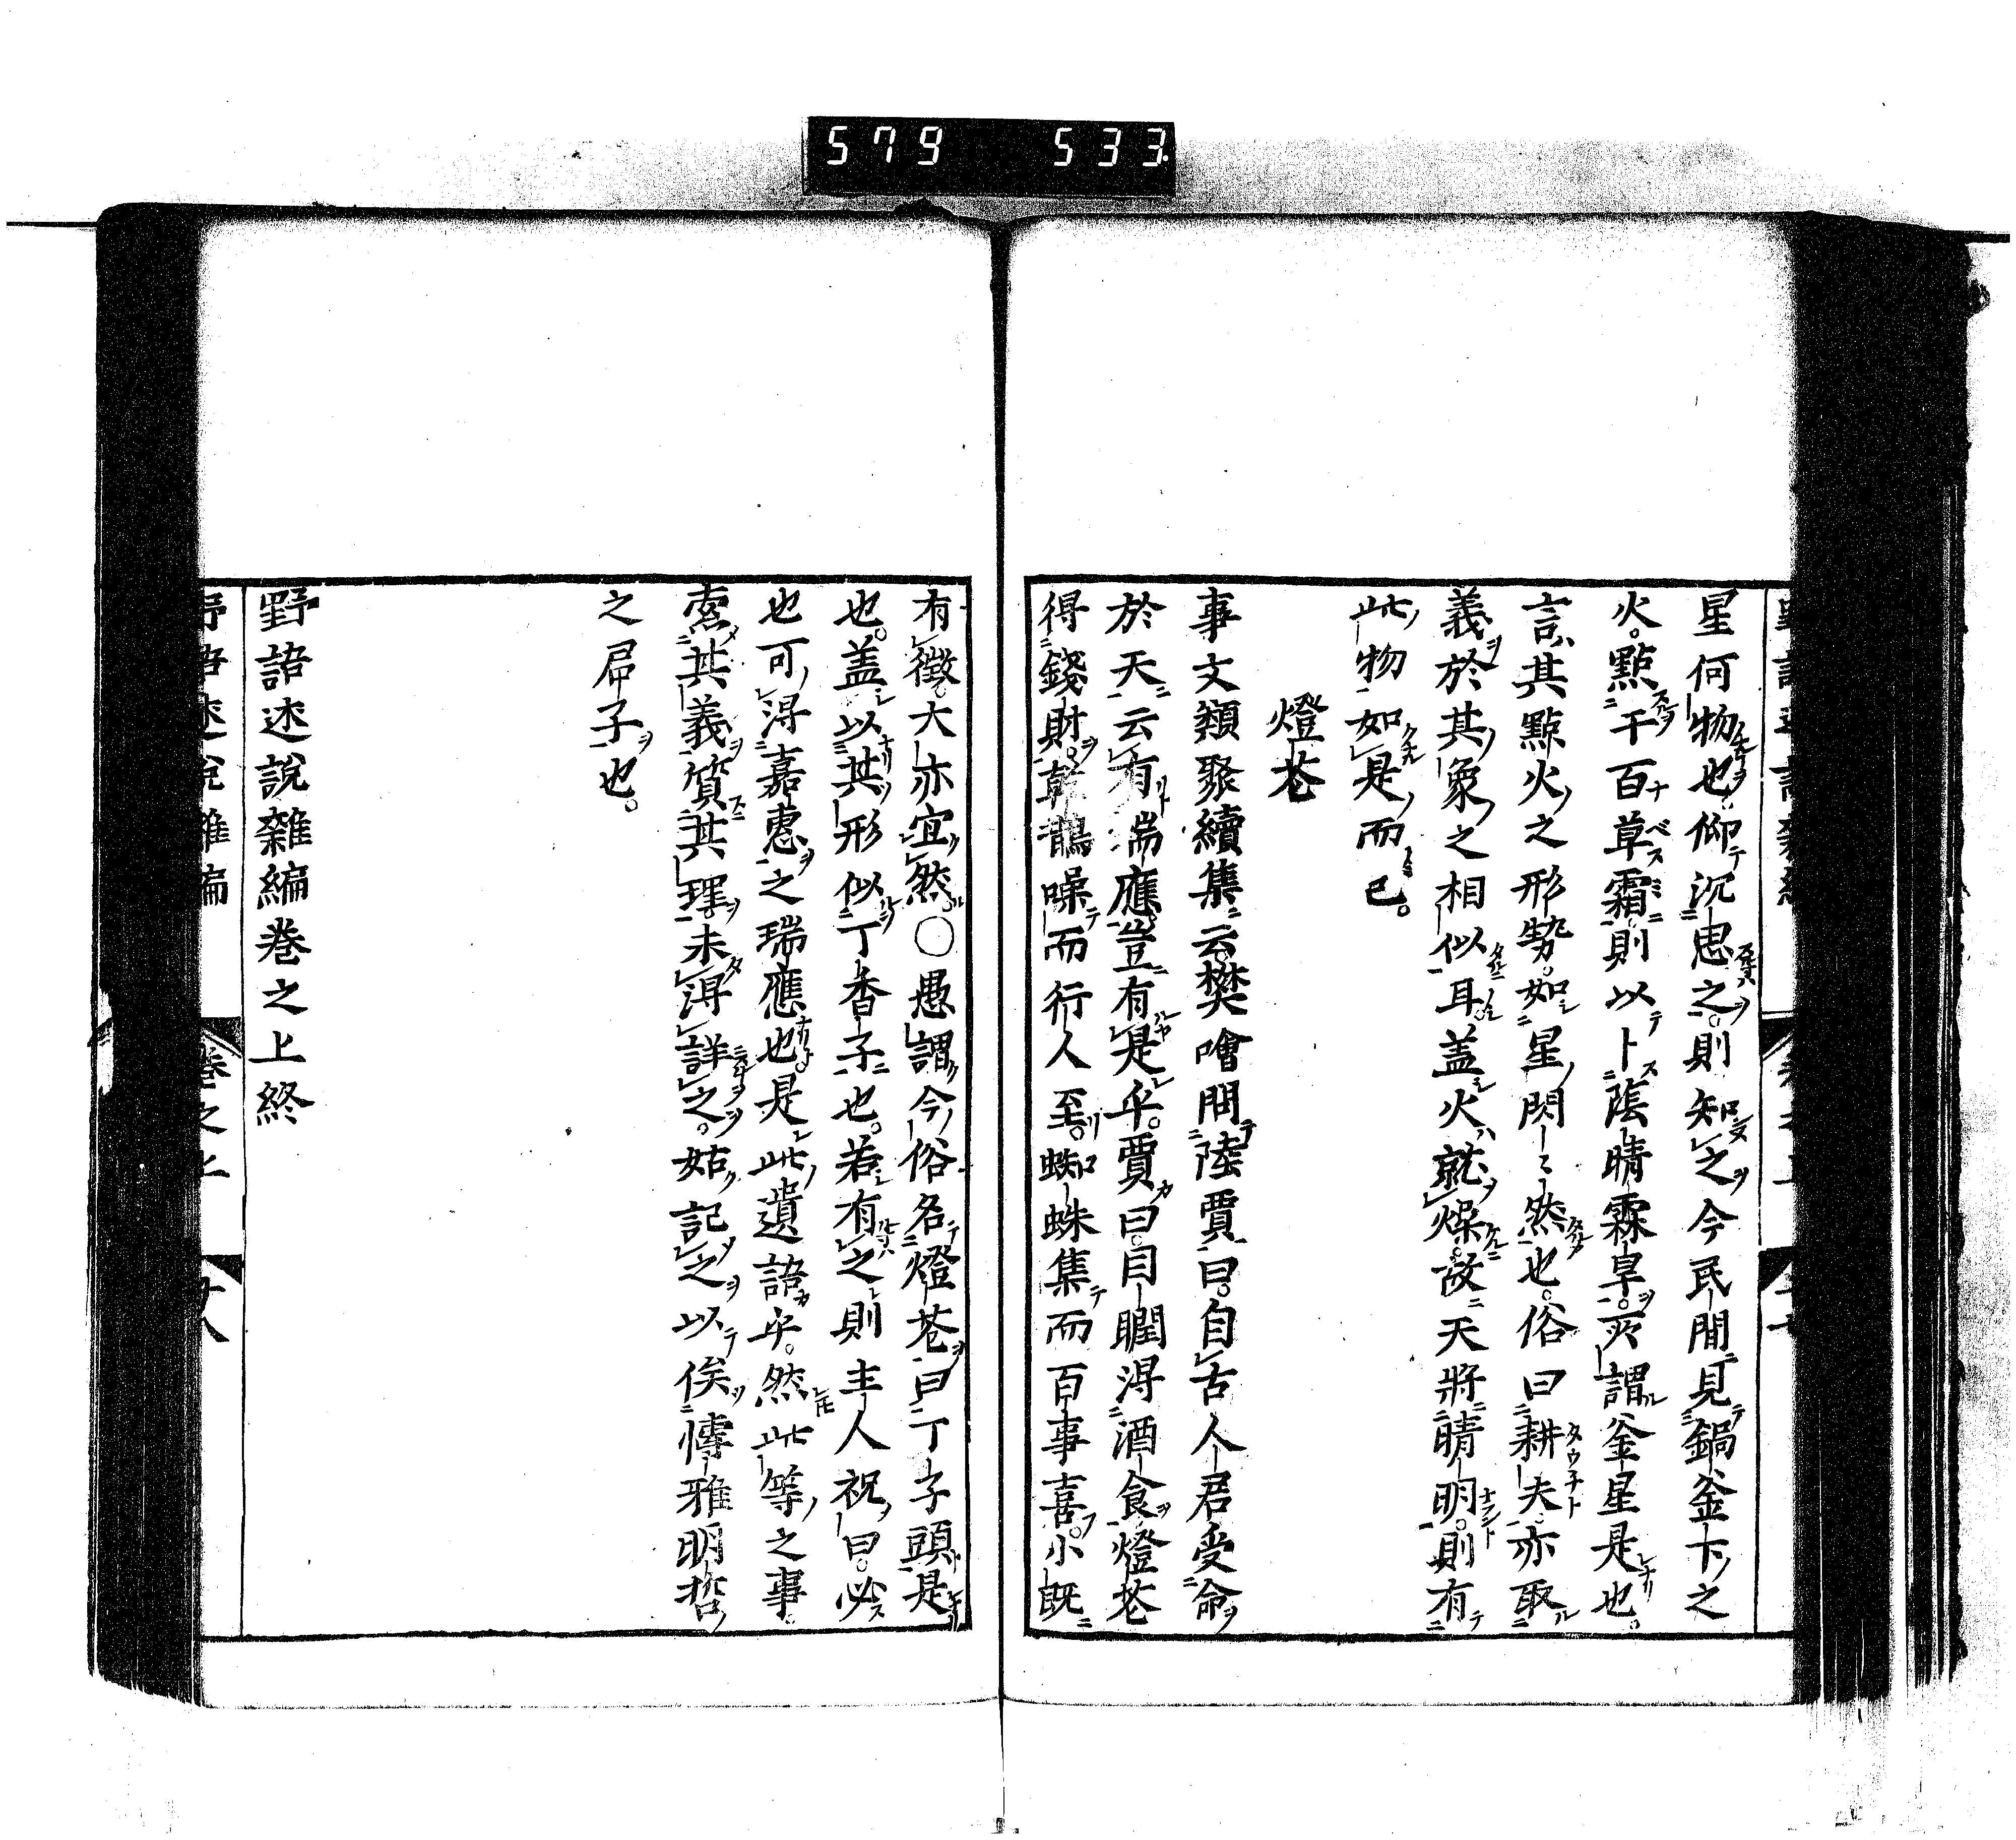 579 533
星何物也仰沉思之則知之今民間見鍋釜下之
火。點千百草霜則以卜陰晴霖旱。灭謂釜星是也。
言其點火之形勢。如星閃〻然也。俗曰耕夫亦取
義於其象之相似耳。盖火就燥。故天將晴明。則有
此物如是而已。
燈花
事文類聚續集云樊噲問陸賈曰。自古人君受命
於天云有瑞應豈有是乎。賈曰。目瞤得酒食燈花
得錢財。乾鵲噪而行人至。蜘蛛集而百事喜。小既
有徵。大亦宜然。〇愚謂今俗名燈花曰丁子頭是
也。盖以其形似丁香子也。若有之則主人祝曰。必
也可得嘉惠之瑞應也。是此遺語乎。然此等之事。
索其義質其理未得詳之。姑記之以俟博雅明哲
之君子也。
野語述說雜編巻之上終
野語述說雜編 巻之上 廿八